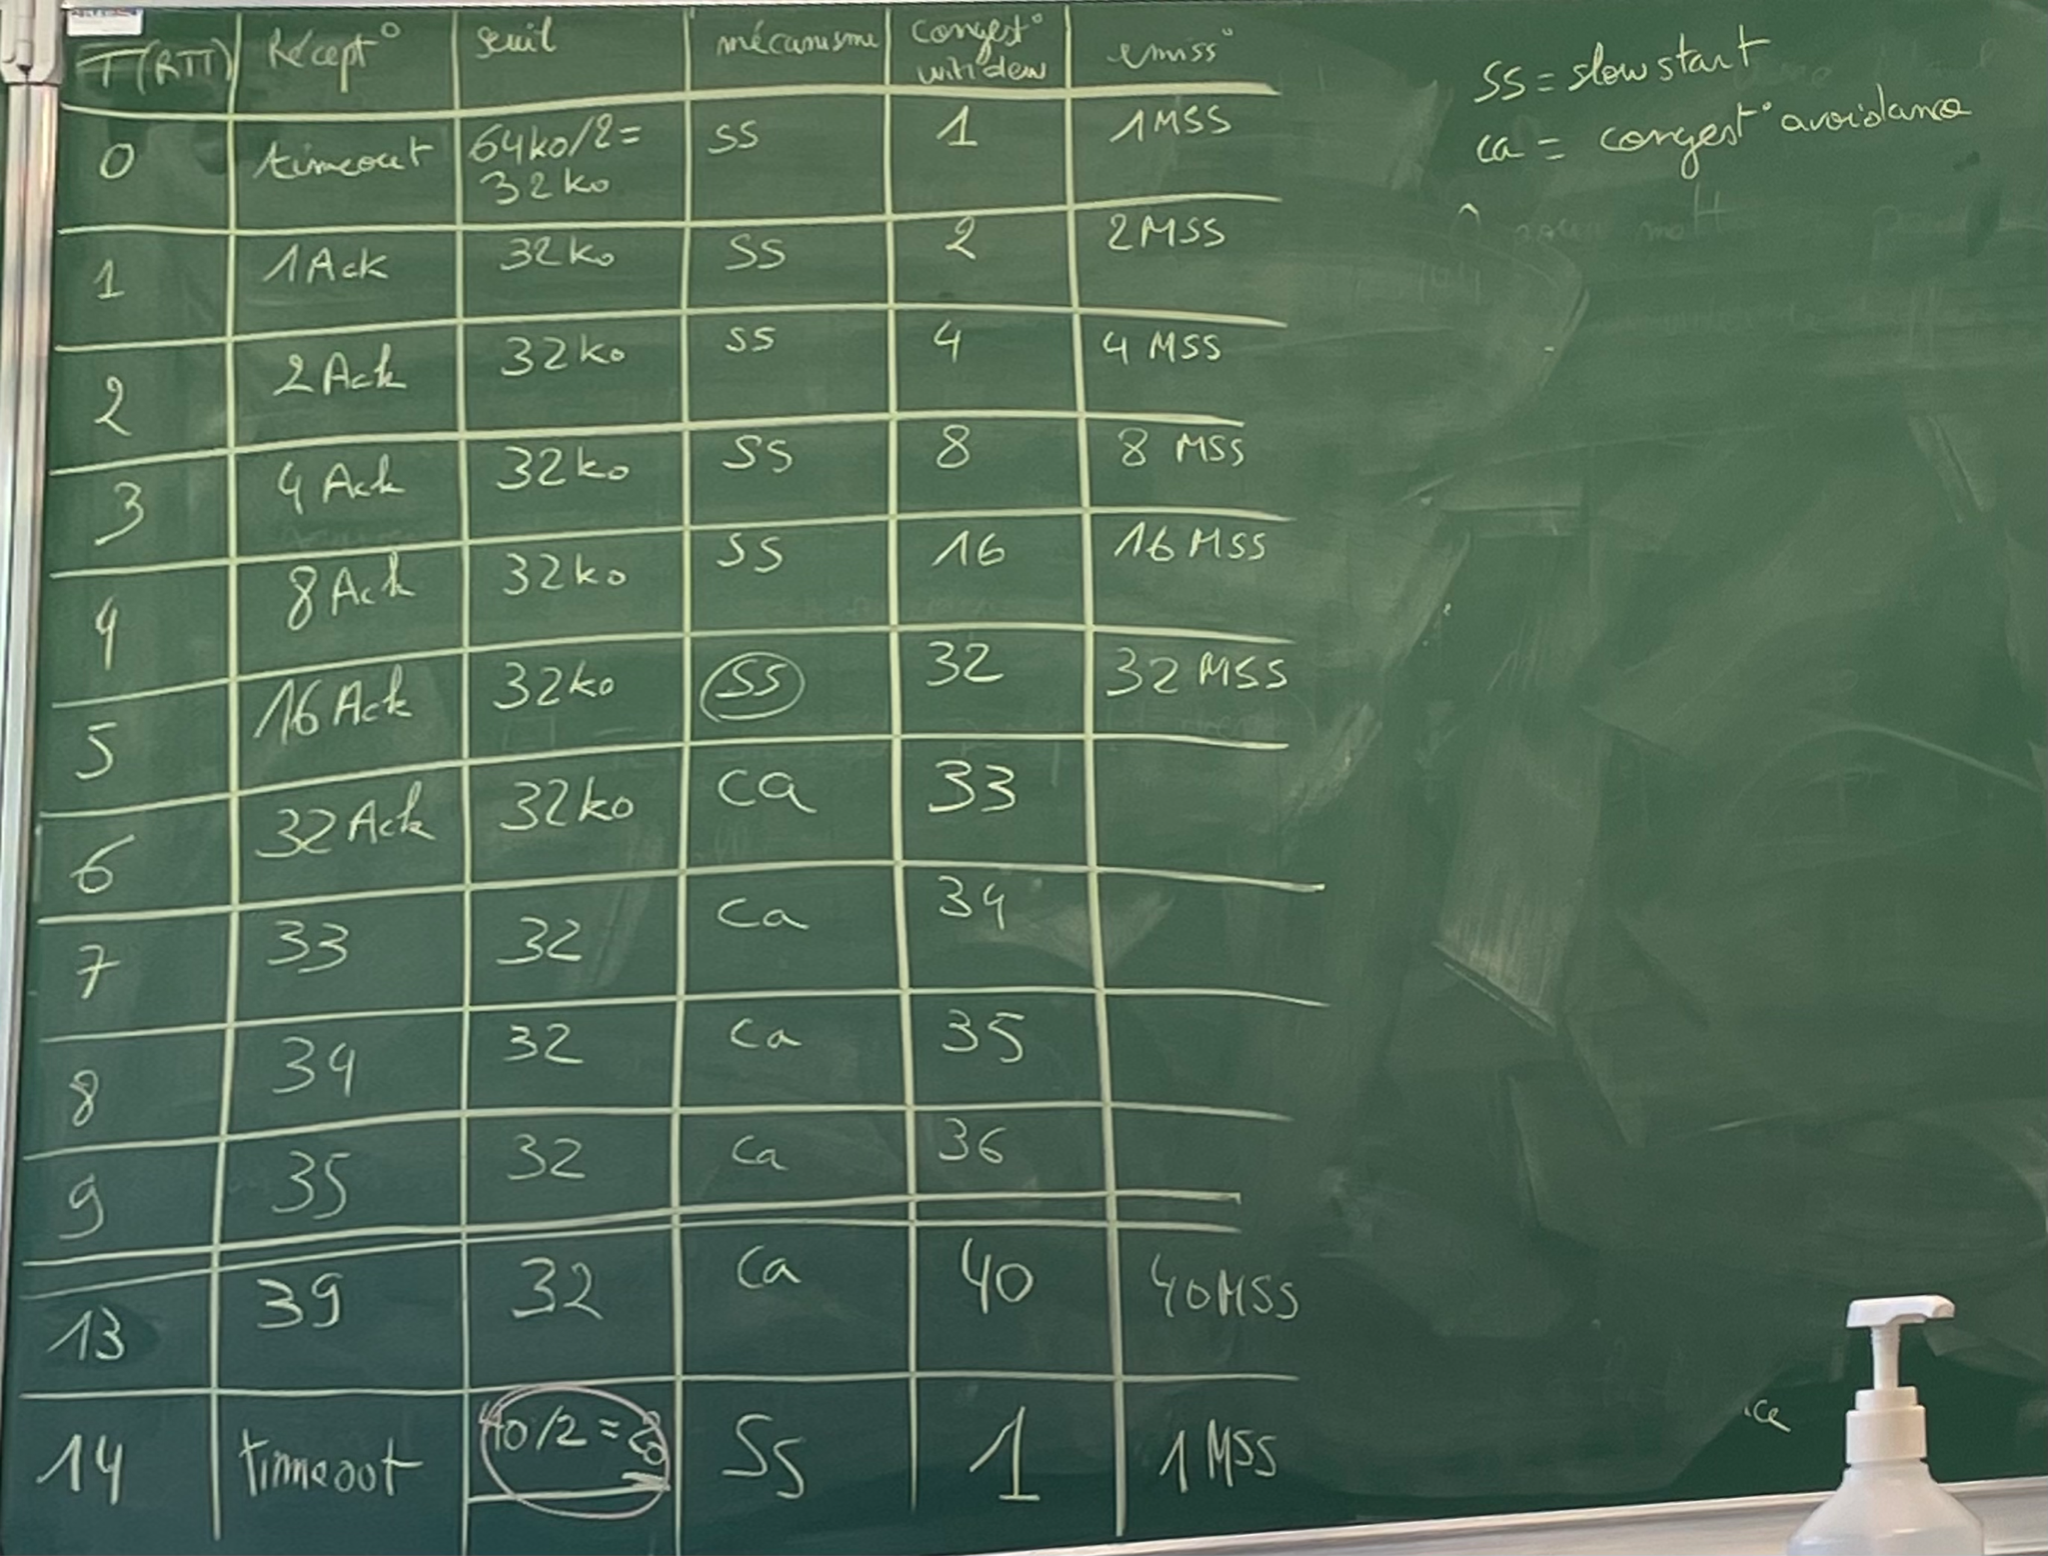 T (RTT) Récept° seuil mécanisme congest° window emiss°
0 timeout 64ko/2= 32ko SS 1 1MSS
1 1Ack 32ko SS 2 2MSS
2 2Ack 32ko SS 4 4 MSS
3 4 Ack 32ko SS 8 8 MSS
4 8 Ack 32ko SS 16 16 MSS
5 16 Ack 32ko SS 32 32 MSS
6 32 Ack 32ko ca 33
7 33 32 ca 34
8 34 32 ca 35
9 35 32 ca 36
13 39 32 ca 40 40MSS
14 timeout 40/2=20 SS 1 1 MSS
SS = slow start
ca = congest° avoidance